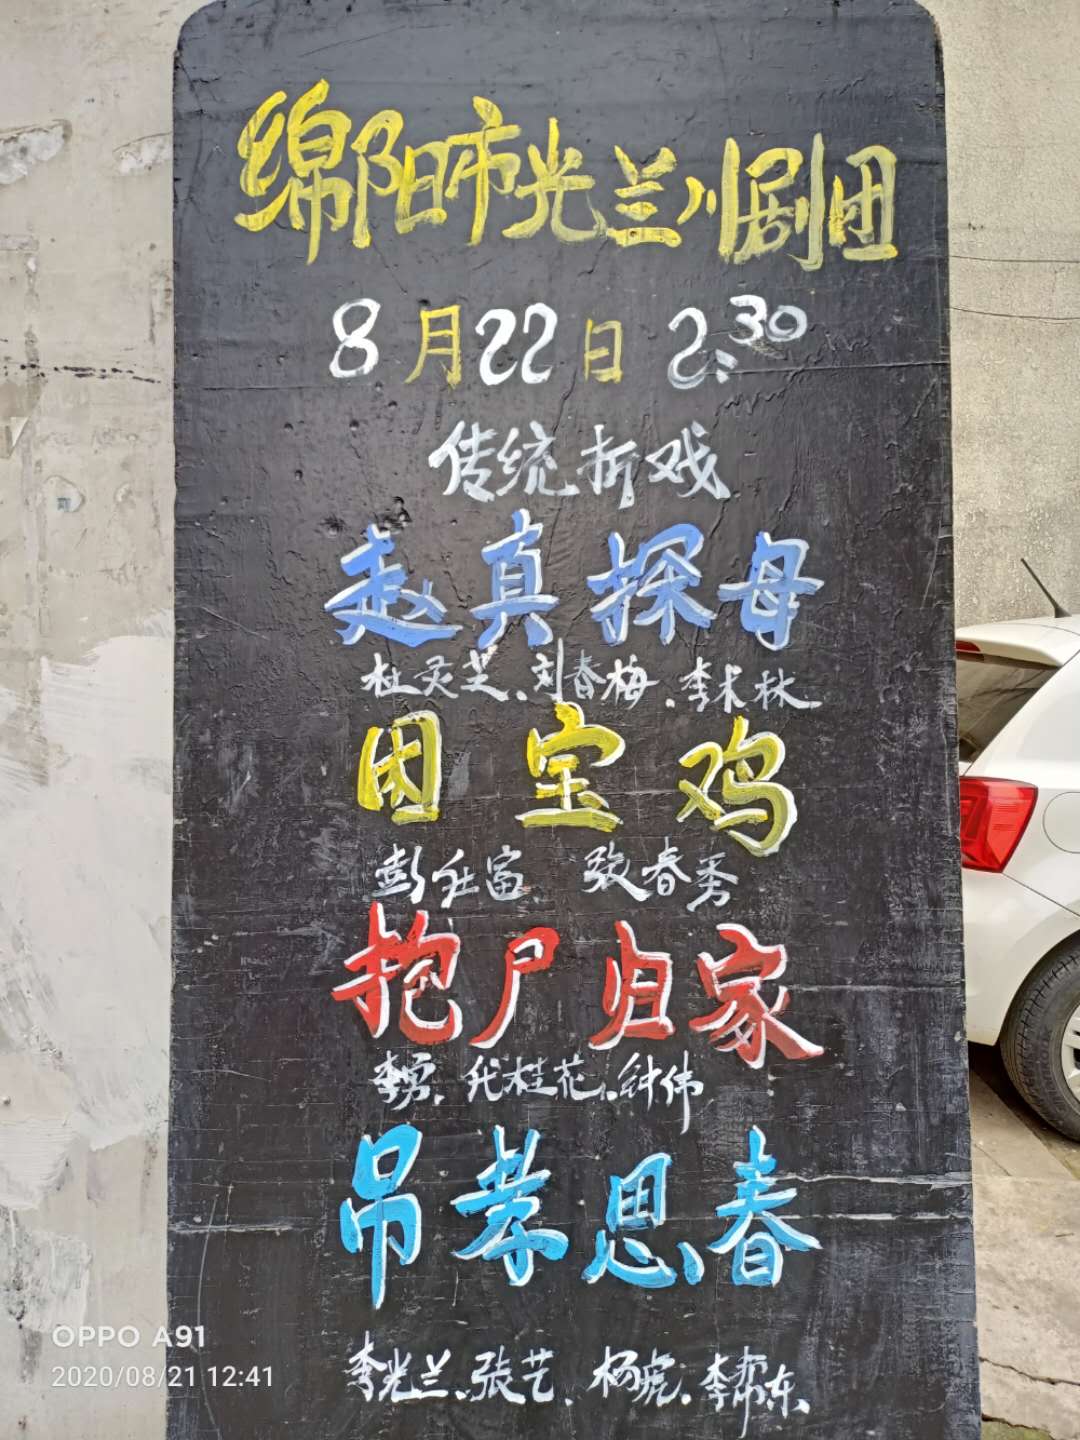 绵阳市光兰川剧团
8月22日 2:30
传统折戏
赵真探母
杜灵芝、刘春梅、李木林
困宝鸡
彭仕富 张春秀
抱尸归家
李勇、代桂花、钟伟
吊孝思春
李光兰、张艺、杨虎、李帮东
OPPO A91
2020/08/21 12:41